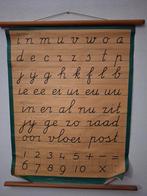 i n m u v w o a
d e c r z s t p
j y g h k f l b
ie ee er ui eu uu
in er al nu zit
jy ge zo raad
oor vloer post
1 2 3 4 5 + - =
6 7 8 9 10 ×